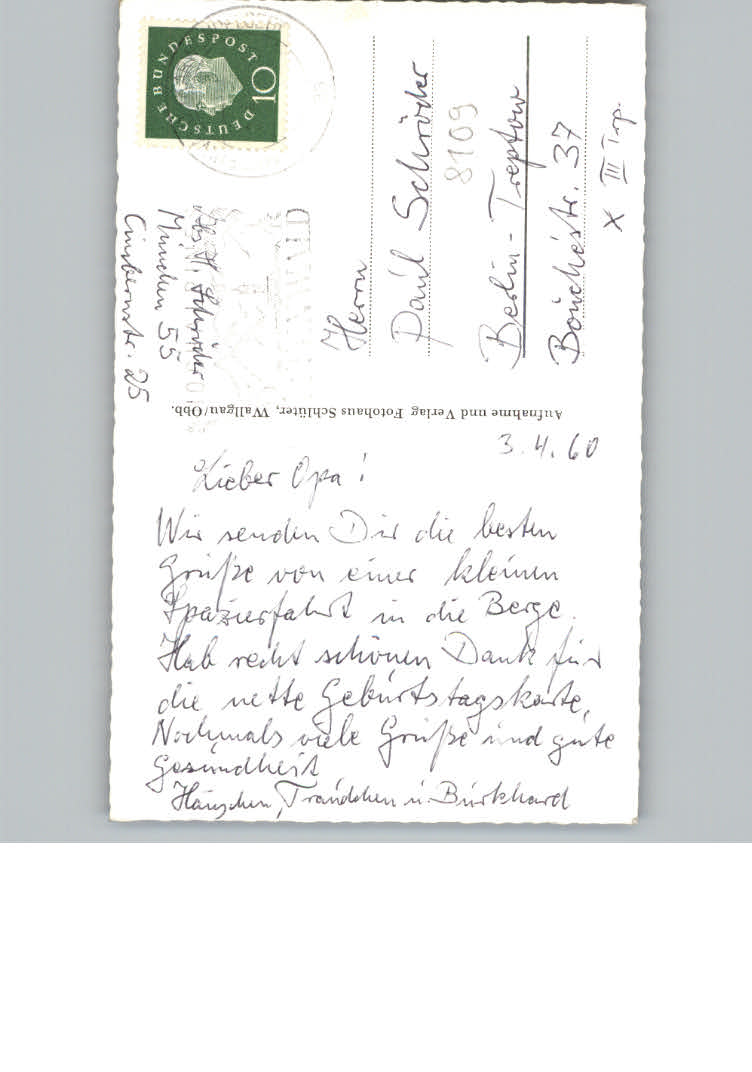 3.4.60
Lieber Opa!
Wir senden Dir die besten
Grüße von einer kleinen
Spazierfahrt in die Berge.
Hab recht schönen Dank für
die nette Geburtstagskarte.
Nochmals viele Grüße und gute
Gesundheit
Hänschen, Traudchen u. Burkhard
Aufnahme und Verlag Fotohaus Schlüter, Wallgau/Obb.
Abs. H. Schröder
München 55
Cimbernstr. 25
DEUTSCHE BUNDESPOST
10
Herrn
Paul Schröder
8109
Berlin-Treptow
Bouchéstr. 37
X III Trp.